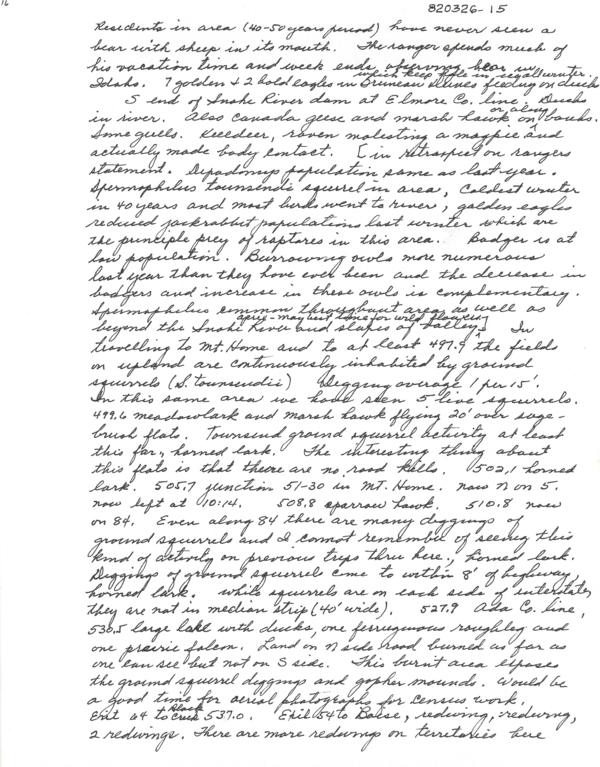 820326-15
Residents in area (40-50 years period) have never seen a
bear with sheep in its mouth. The ranger spends much of
his vacation time and week ends observing bear in
which keep hole in  all winter.
Idaho. 7 golden & 2 bald eagles in Bruneau Dunes feeding on ducks
S end of Snake River dam at Elmore Co. line. Ducks
or along
in river. Also Canada geese and marsh hawk on banks.
Some gulls. Killdeer, raven molesting a magpie and
actually made body contact. [in retrospect on rangers
statement. Dipodomys population same as last year.
Spermophilus townsendi squirrel in area, Coldest winter
in 40 years and most birds went to river, golden eagles
reduced jackrabbit populations last winter which are
the principle prey of raptores in this area. Badger is at
low population. Burrowing owls more numerous
last year than they have ever been and the decrease in
badgers and increase in these owls is complementary.
Spermophilus common throughout area as well as
beyond the Snake River and slopes of valley. In
travelling to Mt. Home and to at least 497.9 the fields
on upland are continuously inhabited by ground
squirrels (S. townsendii) Digging average 1 per 15'.
In this same area we have seen 5 live squirrels.
499.6 meadowlark and marsh hawk flying 20' over sage-
brush flats. Townsend ground squirrel activity at least
this far, horned lark. The interesting thing about
this flats is that there are no road kills. 502.1 horned
lark. 505.7 junction 51-30 in Mt. Home. now N on 5.
now left at 10:14. 508.8 sparrow hawk. 510.8 now
on 84. Even along 84 there are many diggings of
ground squirrels and I cannot remember of seeing this
kind of activity on previous trips thru here., horned lark.
Diggings of ground squirrels come to within 8' of highway,
horned lark. While squirrels are on each side of interstate,
they are not in median strip (40' wide). 527.9 Ada Co. line,
530.5 large lake with ducks, one ferruginous roughleg and
one prairie falcon. Land on N side road burned as far as
one can see but not on S side. This burnt area exposes
the ground squirrel diggings and gopher mounds. Would be
a good time for aerial photographs for census work.
Black
Exit 64 to Creek 537.0. Exit 54 to Boise, redwing, redwing,
2 redwings. There are more redwings on territories here